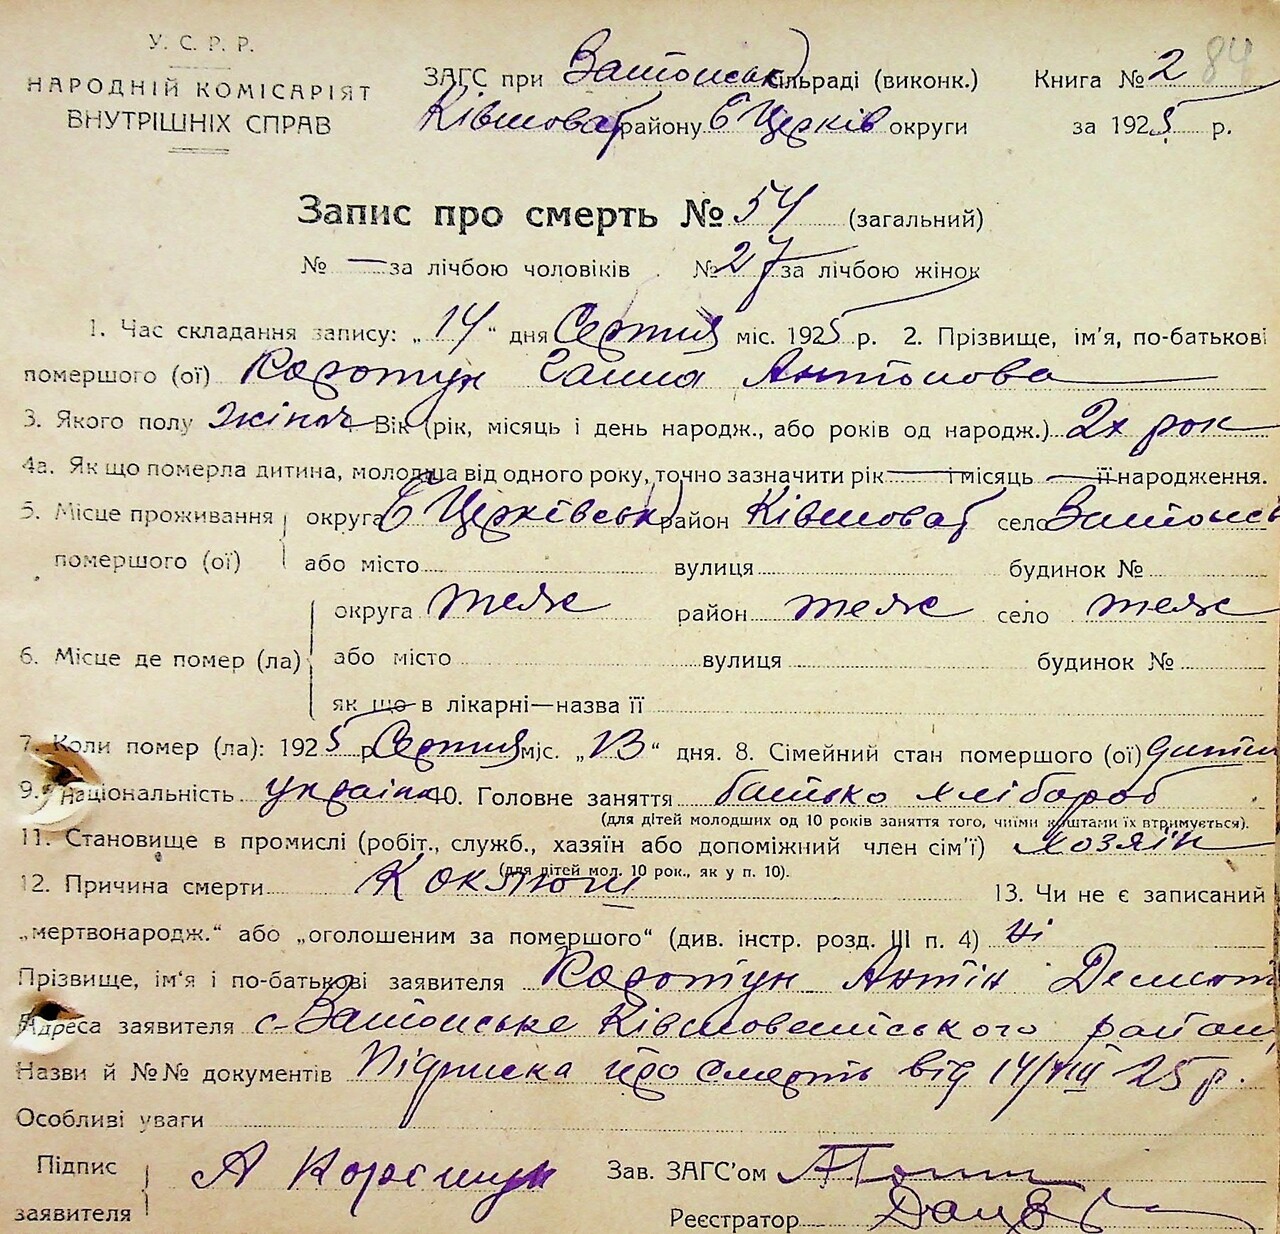 У. С. Р. Р.
НАРОДНІЙ КОМІСАРІЯТ
ВНУТРІШНІХ СПРАВ
84
ЗАГС при сільраді (виконк.) Книга № 2
Ківшоват району Б Церків округи за 1925 р.
Запис про смерть № 54 (загальний)
№ — за лічбою чоловіків № 27 за лічбою жінок
1. Час складання запису: „14“ дня Серпня міс. 1925 р. 2. Прізвище, ім'я, по-батькові
помершого (ої) Коротун Ганна Антонова
3. Якого полу жіноч Вік (рік, місяць і день народж., або років од народж.) 2х рок
4а. Як що померла дитина, молодша від одного року, точно зазначити рік — і місяць — її народження.
5. Місце проживання помершого (ої) округа Б Церківськ район Ківшоват село
або місто вулиця будинок №
6. Місце де помер (ла) округа теж район теж село теж
або місто вулиця будинок №
як що в лікарні—назва її
7. Коли помер (ла): 1925 р. Серпня міс. „13“ дня. 8. Сімейний стан помершого (ої) дитина
9. Національність україн 10. Головне заняття батько хлібороб
(для дітей молодших од 10 років заняття того, чиїми коштами їх втримується).
11. Становище в промислі (робіт., служб., хазяїн або допоміжний член сім'ї) хозяїн
(для дітей мол. 10 рок., як у п. 10).
12. Причина смерти Коклюш 13. Чи не є записаний
„мертвонародж.“ або „оголошеним за помершого“ (див. інстр. розд. III п. 4) ні
Прізвище, ім'я і по-батькові заявителя Коротун Антін
Адреса заявителя с. Ківшоватського район
Назви й №№ документів Підписка про смерть від 14/VIII 25 р.
Особливі уваги
Підпис заявителя А Коротун Зав. ЗАГС'ом
Реєстратор